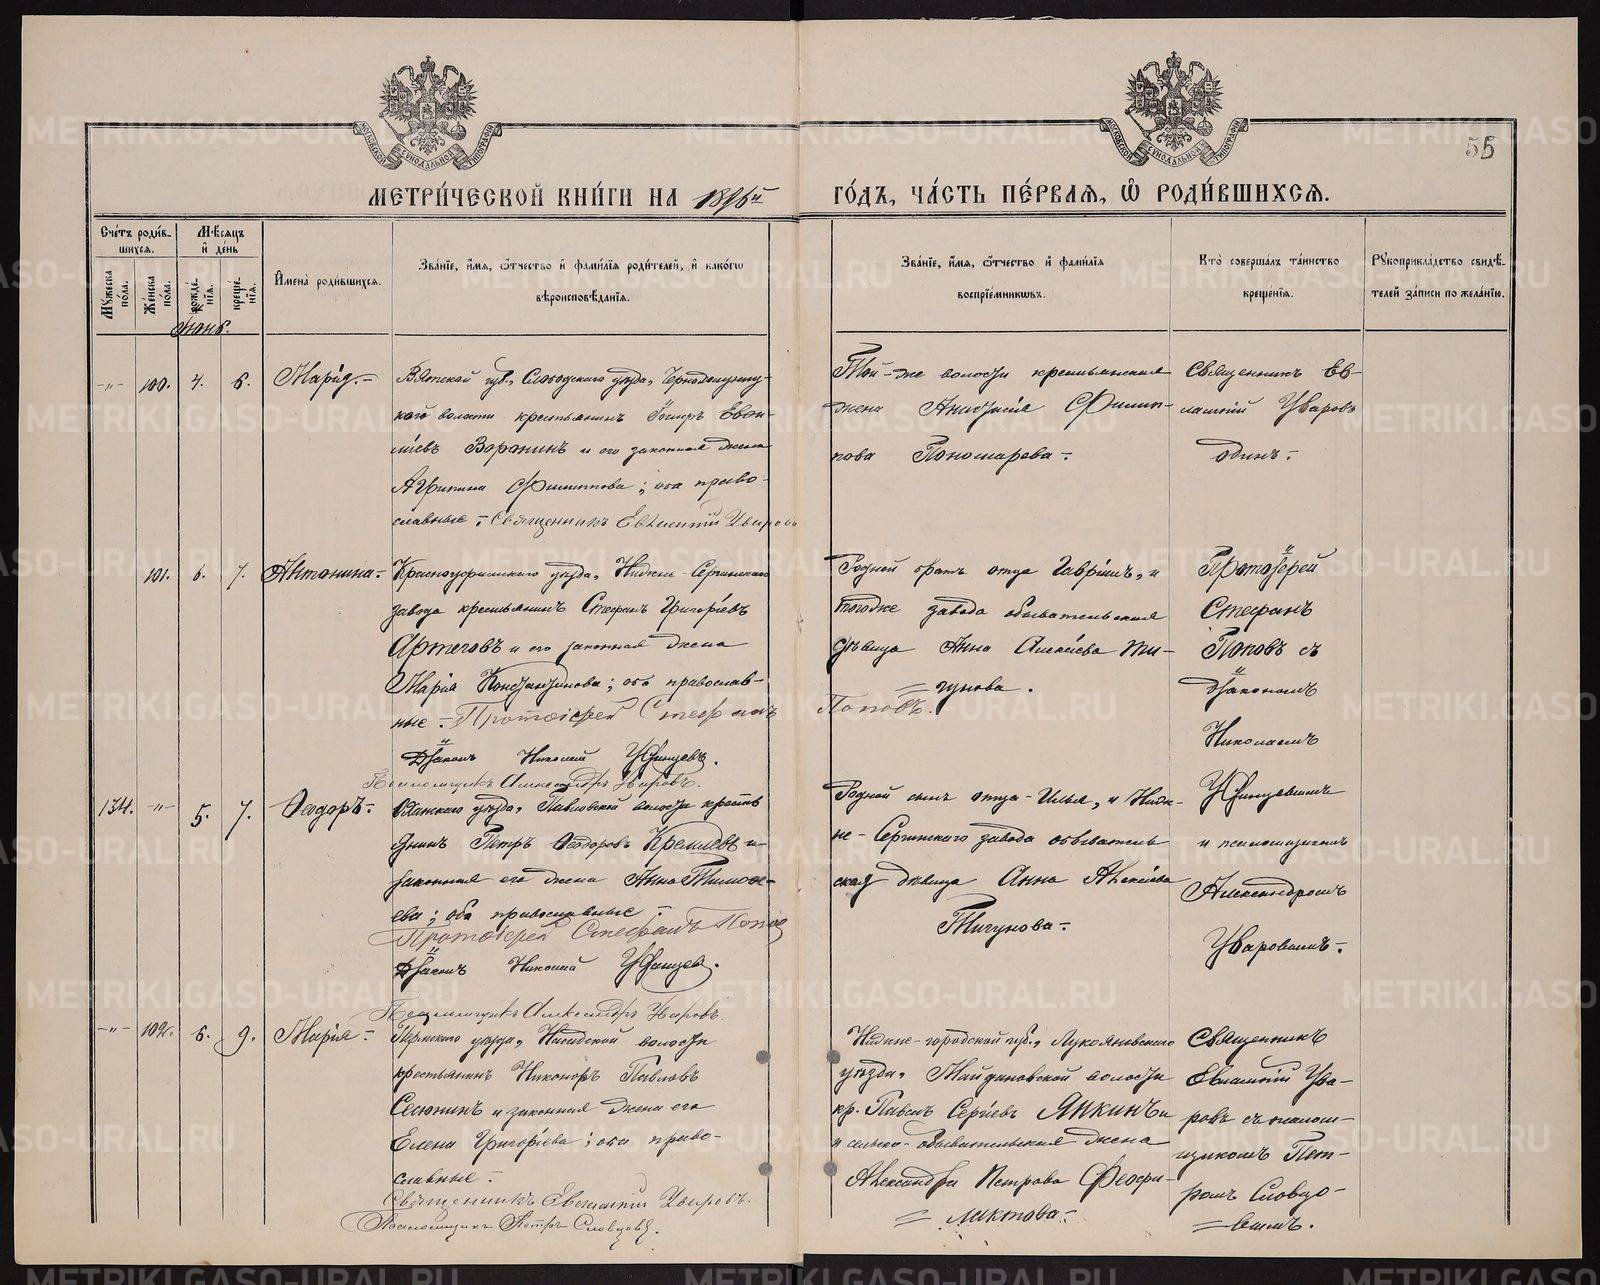 МЕТРИ́ЧЕСКОЙ КНИ́ГИ НА 1896й ГО́ДЪ, ЧА́СТЬ ПЕ́РВАЯ, Ѽ РОДИ́ВШИХСЯ.
55
Сче́тъ роди́в-
шихся.
Мѣ́сяцъ
и҆ де́нь
Мꙋ́жеска по́ла.
Же́нска по́ла.
рожде́-нїѧ.
креще́-нїѧ.
И҆мена̀ роди́вшихся.
Зва́нїе, и҆́мя, ѻ҆́тчество и҆ фами́лїя роди́телей, и҆ како́гѡ
вѣроисповѣ́данїя.
Зва́нїе, и҆́мя, ѻ҆́тчество и҆ фами́лїя
воспрїе́мникѡвъ.
Кто̀ соверша́лъ та́инство
креще́нїя.
Рꙋкоприкла́дство свидѣ́-
телей за́писи по жела́нїю.
Іюнь.
-"- 100. 4. 6. Марія.-
Вятской губ., Слободского уѣзда,
кой волости крестьянинъ
Воронинъ и его законная жена
Агрипина Филиппова; оба право-
славные. Священникъ Евлампій Уваровъ
Той-же волости крестьянская
жена Анисія Филип-
пова Пономарева.-
Священникъ Ев-
лампій Уваровъ
одинъ.-
101. 6. 7. Антонина.-
Красноуфимскаго уѣзда, Нижне-Сергинскаго
завода крестьянинъ Стефанъ Григоріевъ
Артеговъ и его законная жена
Марія Константинова; оба православ-
ные.- Протоіерей Стефанъ Поповъ.
Діаконъ Николай
Псаломщикъ Александръ Уваровъ.
Родной братъ отца Гавріилъ, и
тогоже завода обывательская
дѣвица Анна Алексѣева Ти-
гунова.
Протоіерей
Стефанъ
Поповъ съ
діакономъ
Николаемъ
и псаломщикомъ
Александромъ
Уваровымъ.-
134. -"- 5. 7. Ѳеодоръ.-
уѣзда, Павловской волости кресть
янинъ Петръ Ѳеодоровъ Кремлевъ и
законная его жена Анна Тимоѳе-
ева; оба православные.-
Протоіерей Стефанъ Попов
Діаконъ Николай
Псаломщикъ Александръ Уваровъ.
Родной сынъ отца-Илья, и Ниж-
не-Сергинскаго завода обыватель
ская дѣвица Анна Алексѣева
Тигунова.-
-"- 102. 6. 9. Марія.-
Пермскаго уѣзда, Насадской волости
крестьянинъ Никоноръ Павловъ
Селюнинъ и законная жена его
Елена Григорьева; оба право-
славные.-
Священникъ Евлампій Уваровъ.
Псаломщикъ Петръ Словцовъ.
Ниже-городской губ., Лукояновскаго
уѣзда, Майдановской волости
кр. Павелъ Сергѣевъ Янкинъ и
и сельско-обывательская жена
Александра Петрова Феофи-
лактова.-
Священникъ
Евлампій Ува-
ровъ съ псалом-
щикомъ Пет-
ромъ Словцо-
вымъ.
METRIKI.GASO-URAL.RU